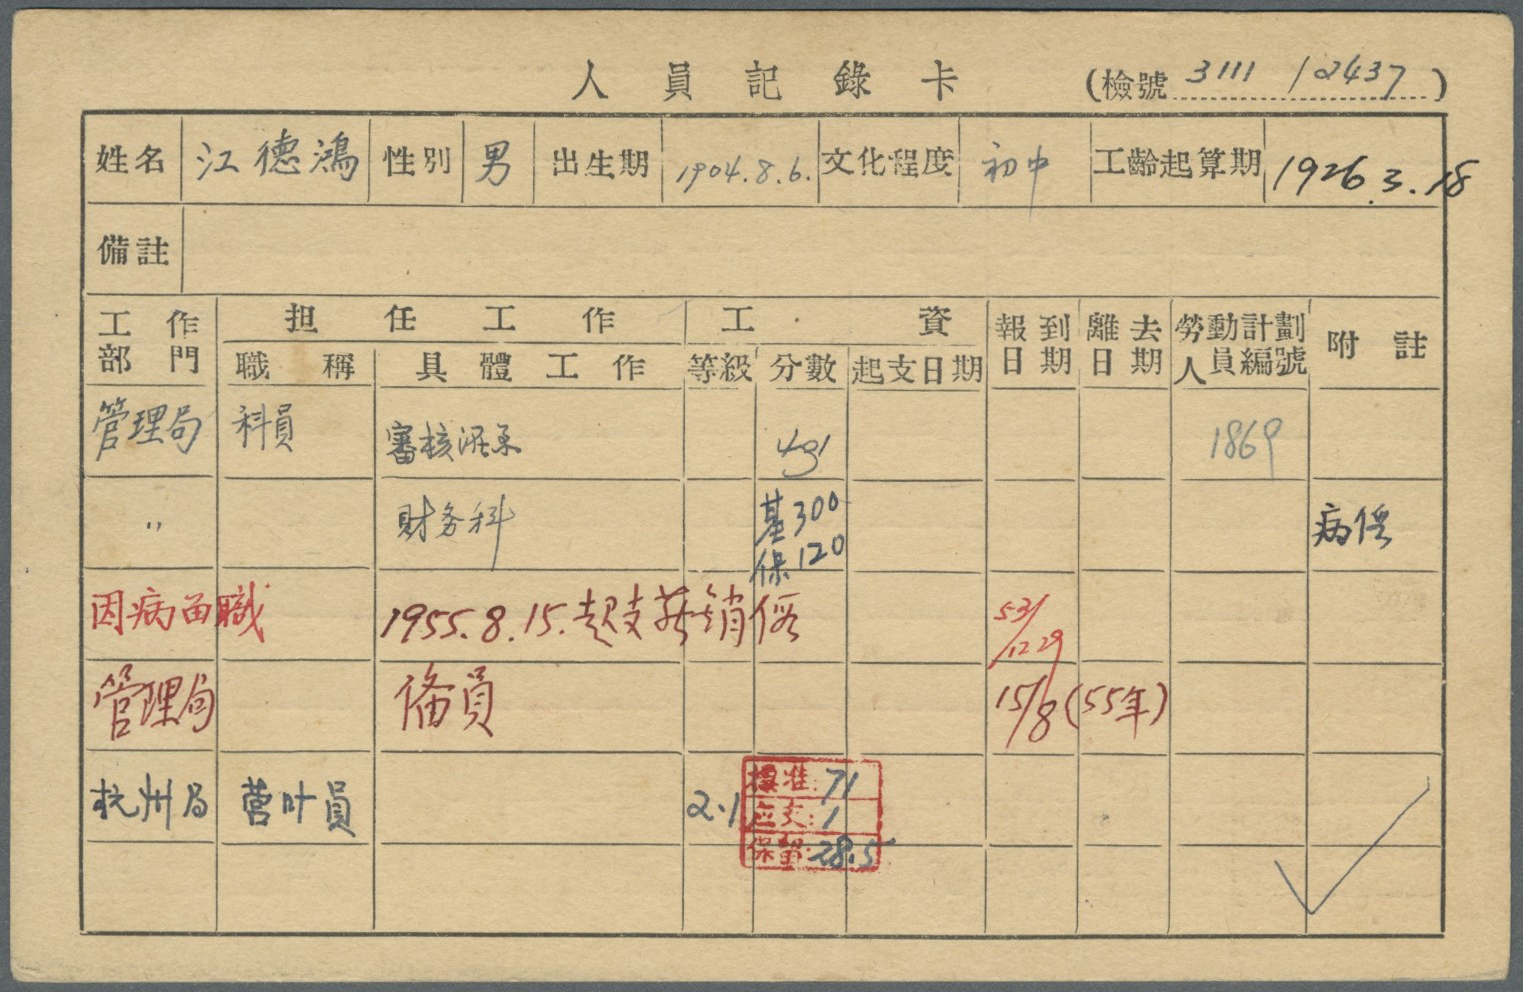 人員記錄卡 (檢號 3111 / 2437)
姓名 江德鴻 性別 男 出生期 1904.8.6. 文化程度 初中 工齡起算期 1926.3.18
備註
工作部門 担任工作 工資 報到日期 離去日期 勞動計劃人員編號 附註
職稱 具體工作 等級 分數 起支日期
管理局 科員 審核 491 1869
〃 財务科 基300 保120 病假
因病 職 1955.8.15.起支 銷假 53/12 29
管理局 備員 15/8(55年)
杭州局 营叶員 2.1
標准:71
应支:1
保留:28.5